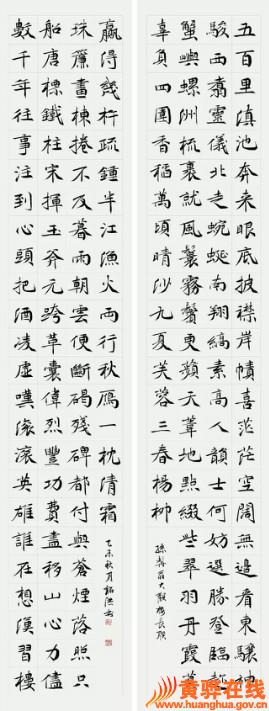 五百里滇池奔来眼底披襟岸幘喜茫茫空闊無邊看東驤神
駿西翥靈儀北走蜿蜒南翔縞素高人韻士何妨選勝登臨趁
蟹嶼螺洲梳裹就風鬟霧鬢更蘋天葦地點綴些翠羽丹霞莫
辜負四圍香稻萬頃晴沙九夏芙蓉三春楊柳
孫髯翁大觀樓長聯
數千年往事注到心頭把酒凌虛嘆滾滾英雄誰在想漢習樓
船唐標鐵柱宋揮玉斧元跨革囊偉烈豐功費盡移山心力儘
珠簾畫棟捲不及暮雨朝雲便斷碣殘碑都付與蒼煙落照只
贏得幾杵疏鐘半江漁火兩行秋雁一枕清霜
乙未秋月
黄骅在线
www.huanghua.gov.cn